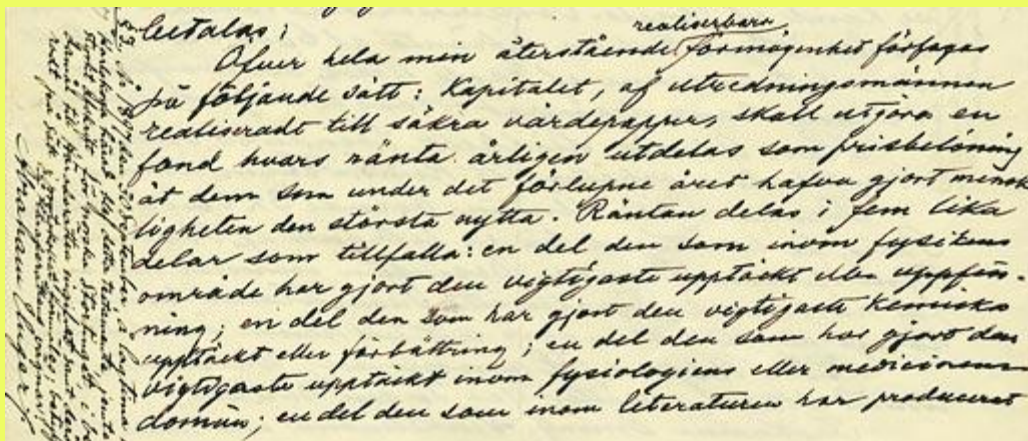 betalas;
realiserbara
Öfver hela min återstående förmögenhet förfogas
på följande sätt: Kapitalet, af utredningsmännen
realiseradt till säkra värdepapper, skall utgöra en
fond hvars ränta årligen utdelas som prisbelöning
åt dem som under det förlupne året hafva gjort mensk
ligheten den största nytta. Räntan delas i fem lika
delar som tillfalla: en del den som inom fysikens
område har gjort den vigtigaste upptäckt eller uppfin-
ning; en del den som har gjort den vigtigaste kemiska
upptäckt eller förbättring; en del den som har gjort den
vigtigaste upptäckt inom fysiologiens eller medicinens
domän; en del den som inom literaturen har producerat
September